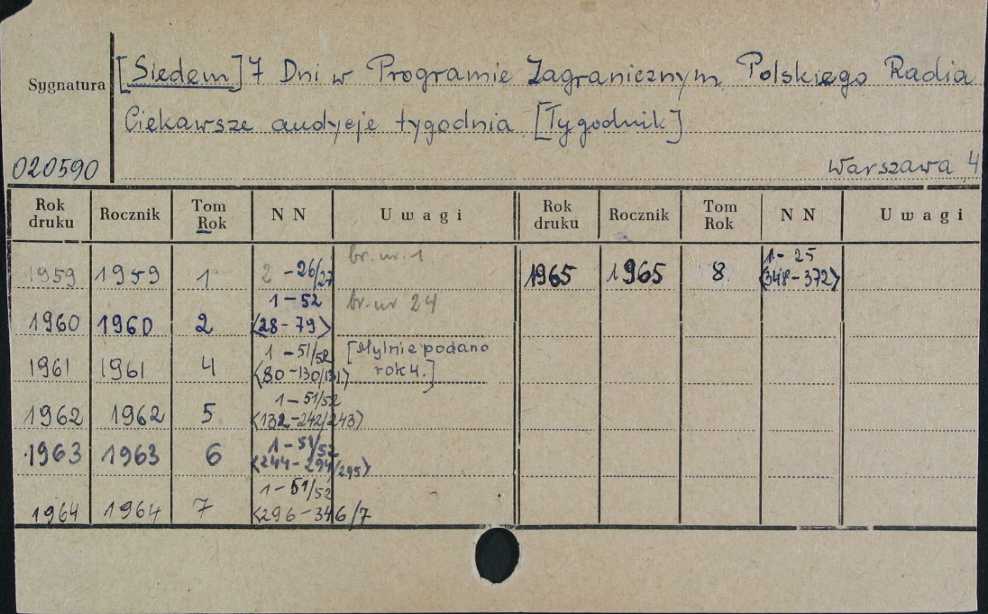 Sygnatura
[Siedem] 7 Dni w Programie Zagranicznym Polskiego Radia
Ciekawsze audycje tygodnia [Tygodnik]
020590 Warszawa 4
Rok druku Rocznik Tom Rok N N Uwagi Rok druku Rocznik Tom Rok N N Uwagi
1959 1959 1 2 - 26/27 br. nr. 1 1965 1965 8 1 - 25 <348-372>
1960 1960 2 1-52 <28-79> br. nr 24
1961 1961 4 1 - 51/52 <80-130/131> [Mylnie podano rok 4.]
1962 1962 5 1-51/52 <132-242/243>
1963 1963 6 1-51/52 <244-294/295>
1964 1964 7 1-51/52 <296-346/7